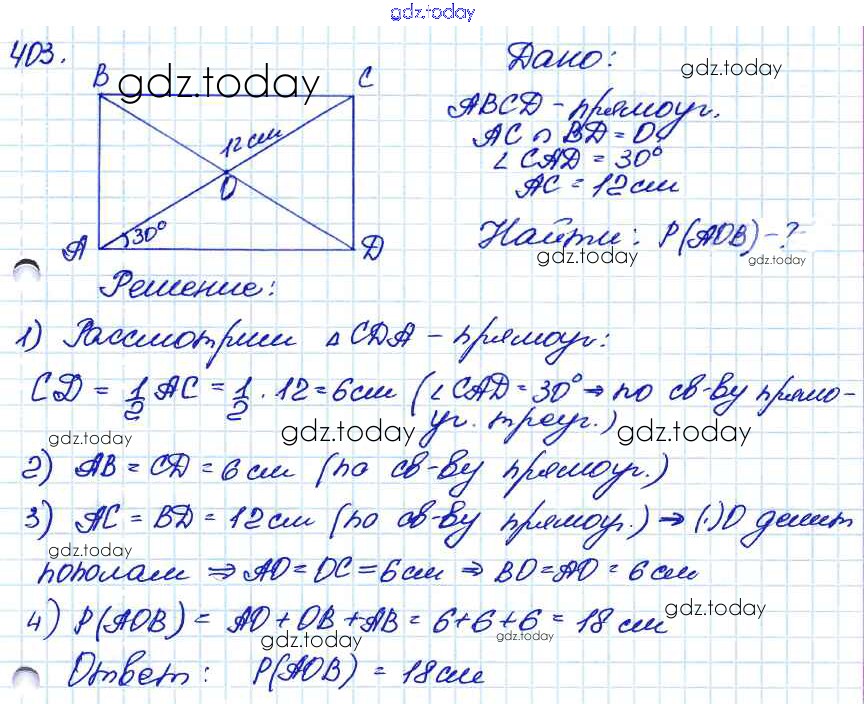 gdz.today
403.
Дано:
B
C
gdz.today
gdz.today
ABCD - прямоуг.
AC ∩ BD = O
12 см
∠ CAD = 30°
O
AC = 12 см
30°
A
D
Найти: P(AOB) - ?
gdz.today
gdz.today
Решение:
1) Рассмотрим △ CDA - прямоуг:
CD = 1/2 AC = 1/2 · 12 = 6 см (∠ CAD = 30° ⇒ по св-ву прямо-
уг. треуг.)
gdz.today
gdz.today
gdz.today
2) AB = CD = 6 см (по св-ву прямоуг.)
3) AC = BD = 12 см (по св-ву прямоуг.) ⇒ (·) O делит
gdz.today
пополам ⇒ AO = OC = 6 см ⇒ BO = AO = 6 см
4) P(AOB) = AO + OB + AB = 6 + 6 + 6 = 18 см
gdz.today
gdz.today
gdz.today
Ответ: P(AOB) = 18 см